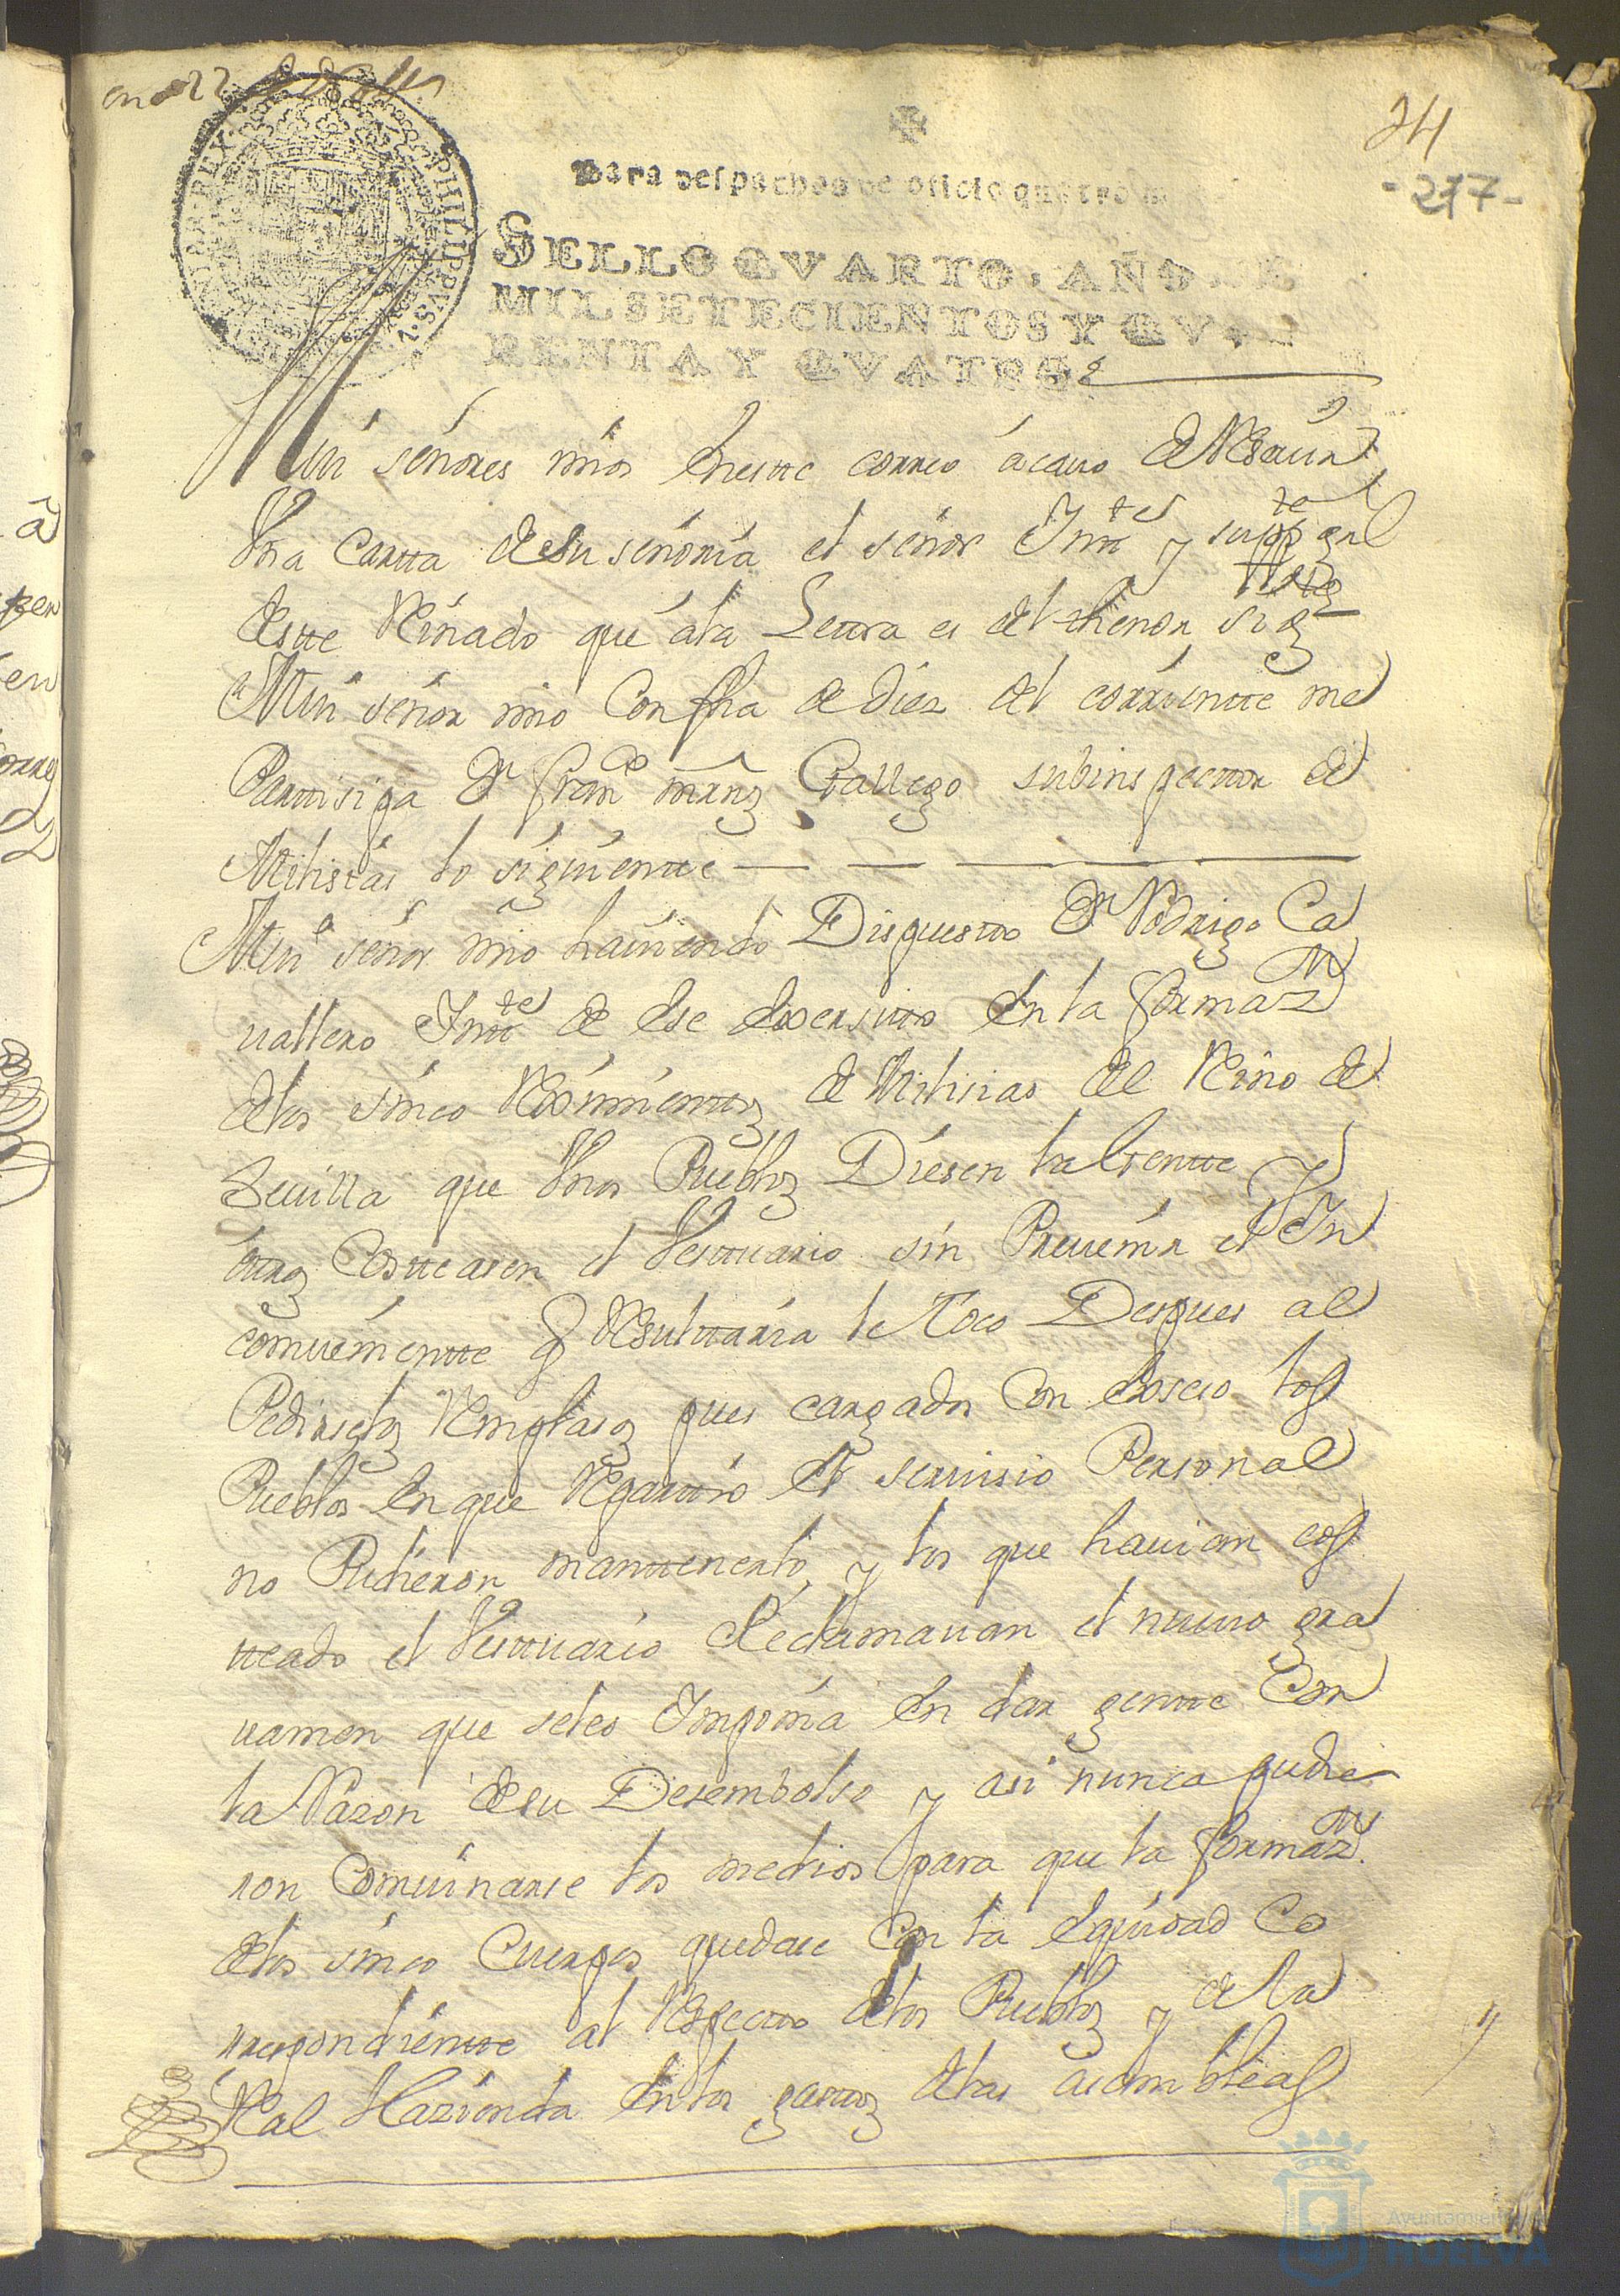 24
-217-
Para despachos de oficio quatro m
SELLO QVARTO, AÑO DE
MIL SETECIENTOS Y QVA
RENTA Y QVATRO
PHILIPPVS V
REX
Mui señores mios Enestte correo acauo de Resiuir
Vna Cartta desu señoria el señor Intte y suppte gral
destte Reinado que ala Lettra es del thenor sigte
Mui señor mio Con fha de diez del corrientte me
Parttisipa Dn Franco Mrnz Gallego subinspecttor de
Milisias lo siguientte
Mui señor mio hauiendo Dispuestto Dn Rodrigo Ca
uallero Intte de ese exersitto En la formazn
delos sinco Reximienttos de Milisias del Reino de
Seuilla que Vnos Pueblos Diesen la Gentte Y
ottros Costteasen el Vesttuario sin Preuenir el In
comueniente q Resulttaria le Toco Despues al
Pedirselos Remplasos pues cargados Con Exseso los
Pueblos En que Reparttio el seruisio Personal
no Pudieron manttenerlo, y los que hauian cos
tteado el Vesttuario Reclamauan el nueuo gra
uamen que seles Imponia En dar gentte Con
la Razon desu Desembolso y asi nunca pudie
ron Comuinarse los medios para que la formazn
delos sinco Cuerpos quedase Con la Equidad Co
rrespondientte al Respectto delos Pueblos y dela
Real Hazienda En los gasttos delas asambleas
Ayuntamiento
HUELVA